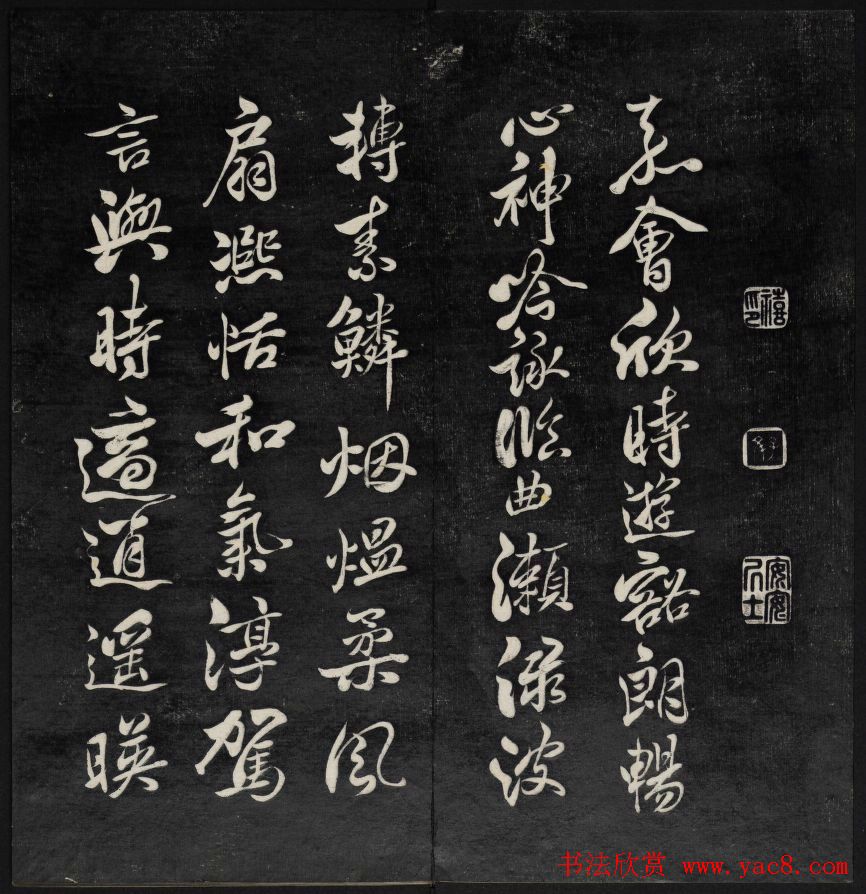 嘉會欣時遊豁朗暢
心神吟詠臨曲瀨淥波
轉素鱗烟熅柔風
扇凞恬和氣淳駕
言興時適逍遥暎
书法欣赏 www.yac8.com